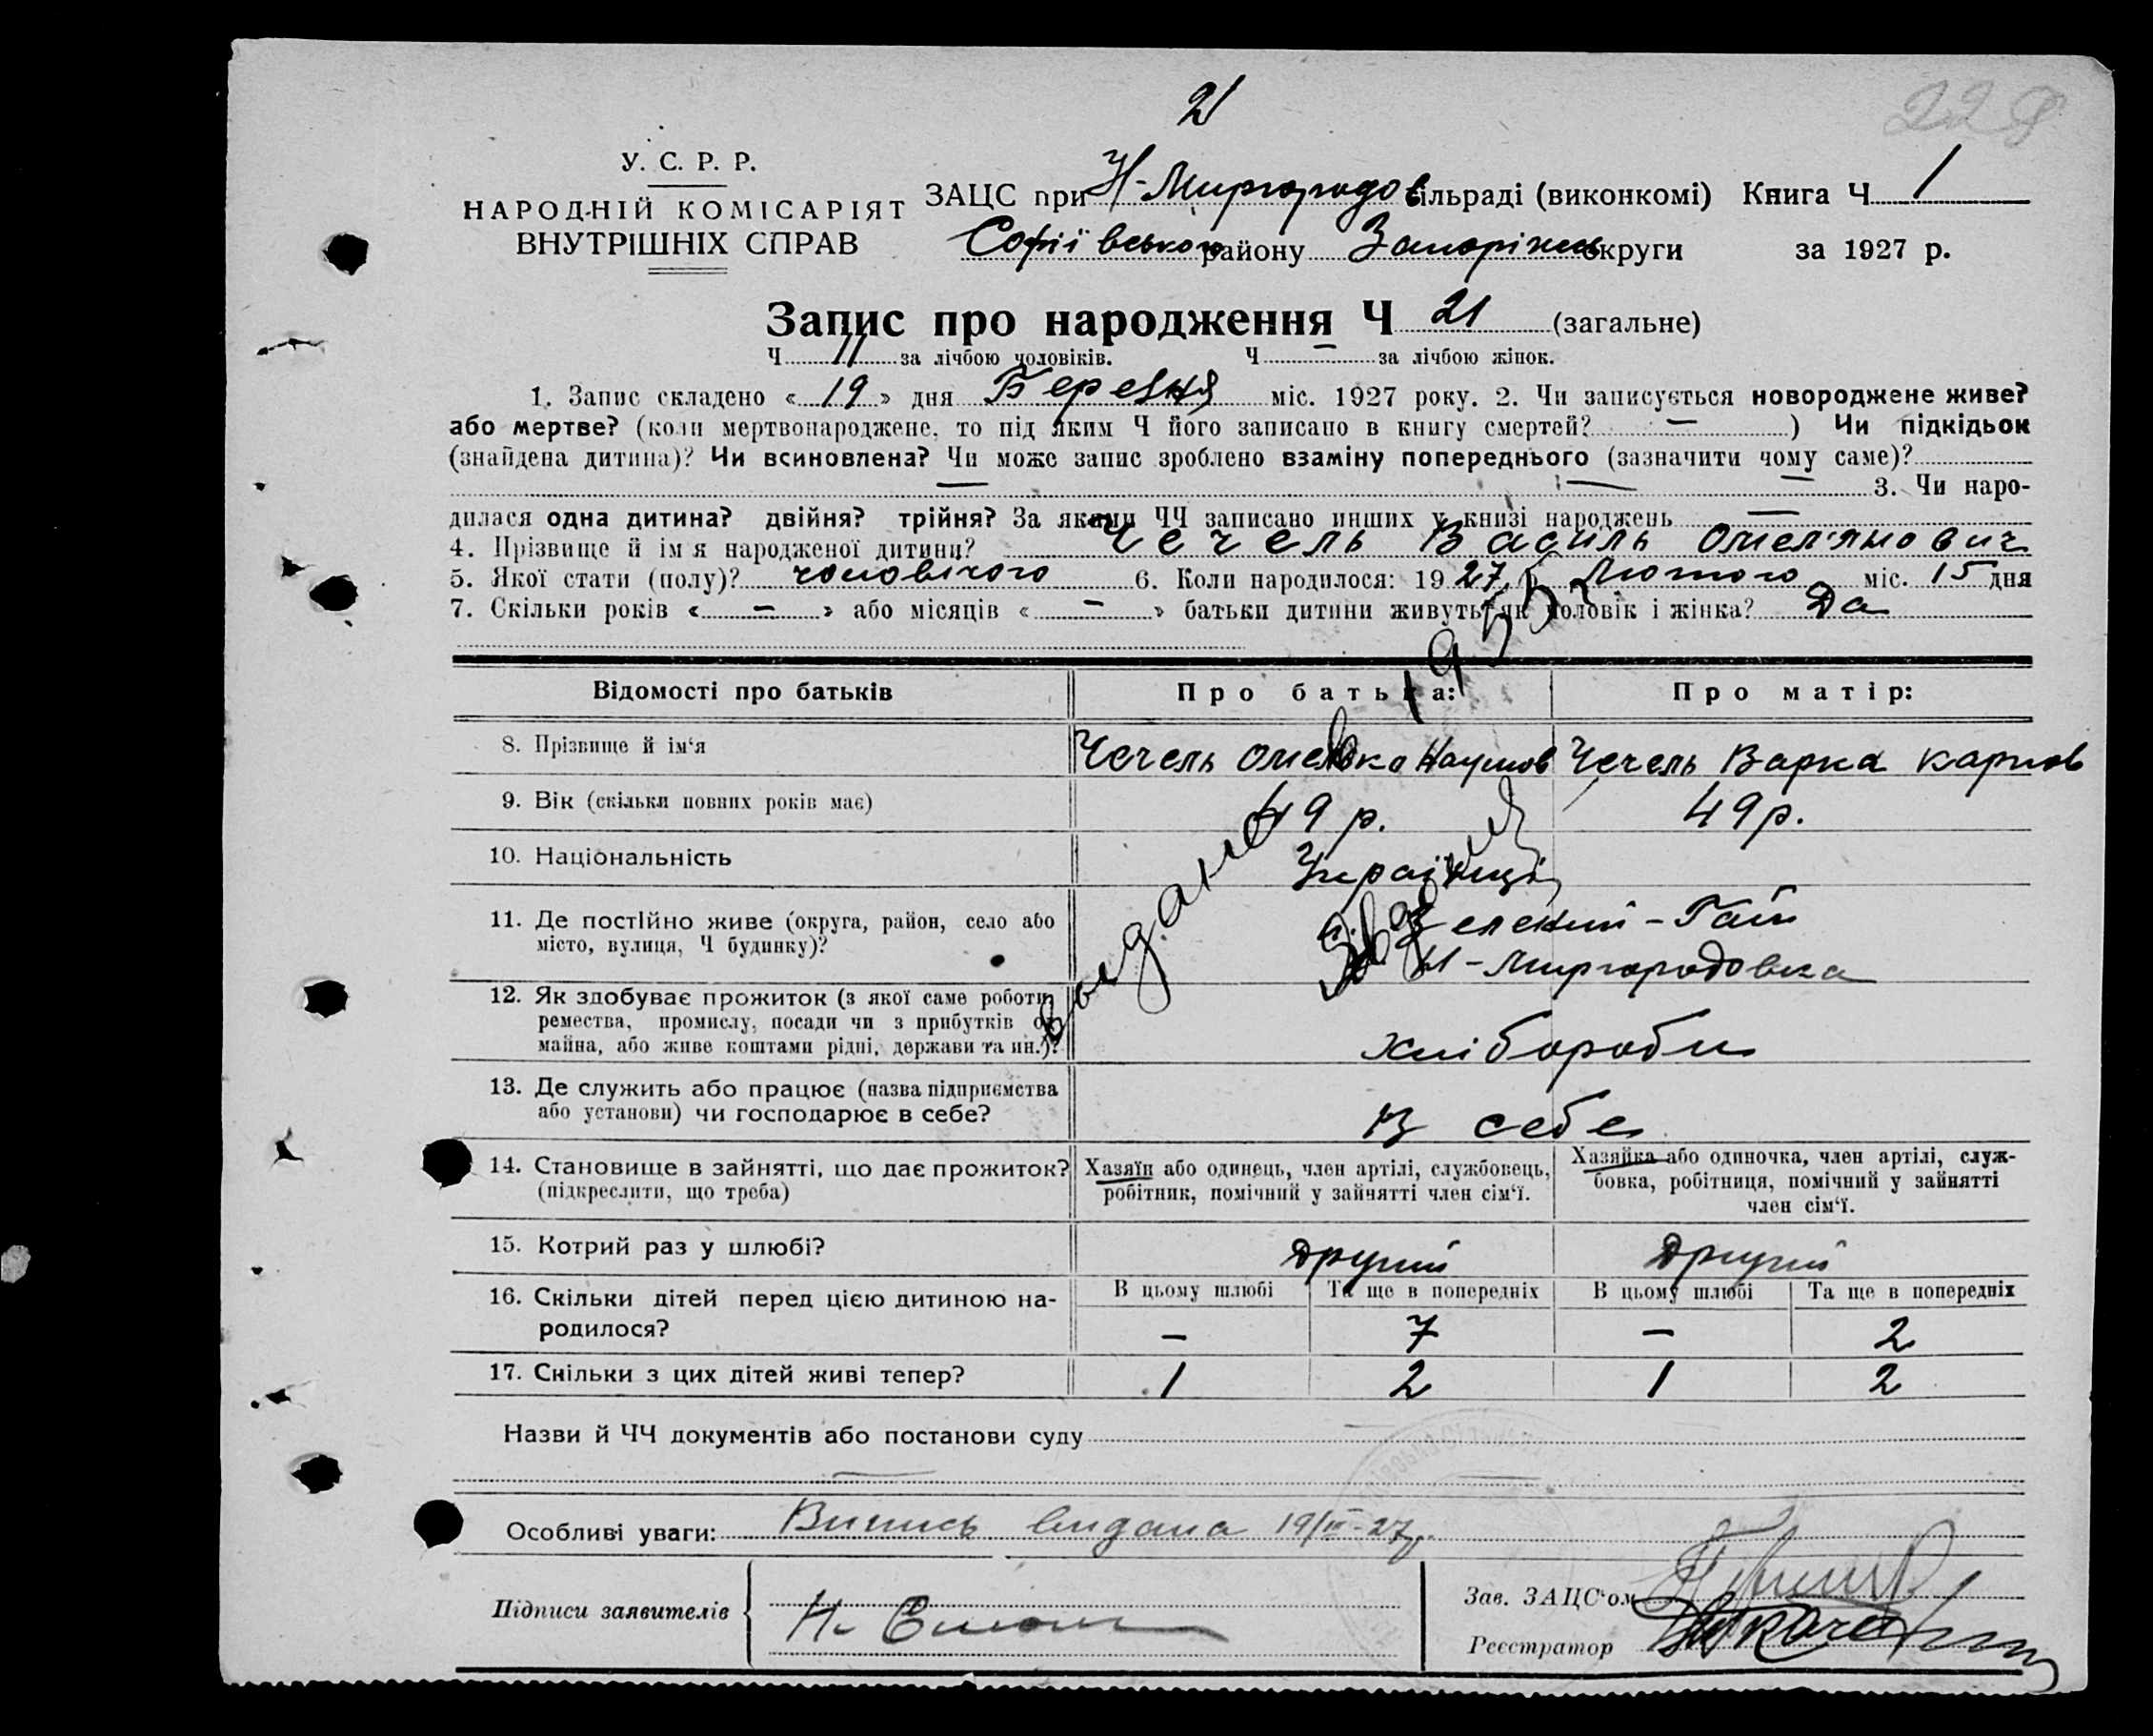 21
228
У. С. Р. Р.
НАРОДНІЙ КОМІСАРІЯТ
ВНУТРІШНІХ СПРАВ
ЗАЦС при Н-Миргородов сільраді (виконкомі) Книга Ч 1
Софіївського району Запоріжськ округи за 1927 р.
Запис про народження Ч 21 (загальне)
Ч 11 за лічбою чоловіків. Ч — за лічбою жінок.
1. Запис складено «19» дня Березня міс. 1927 року. 2. Чи записується новороджене живе?
або мертве? (коли мертвонароджене, то під яким Ч його записано в книгу смертей? — ) Чи підкідьок
(знайдена дитина)? Чи всиновлена? Чи може запис зроблено взаміну попереднього (зазначити чому саме)?
— — — 3. Чи наро-
дилася одна дитина? двійня? трійня? За якими ЧЧ записано инших у книзі народжень —
4. Прізвище й ім я народженої дитини? Чечель Василь Омел'янович
5. Якої стати (полу)? чоловічого 6. Коли народилося: 1927 р. Лютого міс. 15 дня
7. Скільки років « — » або місяців « — » батьки дитини живуть як чоловік і жінка? Да
Відомості про батьків Про батька: Про матір:
8. Прізвище й ім‘я Чечель Омелько Наумов Чечель Варка Карпов
9. Вік (скільки повних років має) 49 р. 49 р.
10. Національність Українці
11. Де постійно живе (округа, район, село або
місто, вулиця, Ч будинку)?
Зелений-Гай
Н-Миргородовка
12. Як здобуває прожиток (з якої саме роботи,
ремества, промислу, посади чи з прибутків од
майна, або живе коштами рідні, держави та ин.)?
хлібороби
13. Де служить або працює (назва підприємства
або установи) чи господарює в себе?
В себе
14. Становище в зайнятті, що дає прожиток?
(підкреслити, що треба)
Хазяїн або одинець, член артілі, службовець,
робітник, помічний у зайнятті член сім‘ї.
Хазяйка або одиночка, член артілі, служ-
бовка, робітниця, помічний у зайнятті
член сім‘ї.
15. Котрий раз у шлюбі? Другий Другий
16. Скільки дітей перед цією дитиною на-
родилося?
В цьому шлюбі Та ще в попередніх В цьому шлюбі Та ще в попередніх
— 7 — 2
17. Скільки з цих дітей живі тепер? 1 2 1 2
Назви й ЧЧ документів або постанови суду
Особливі уваги: Випись видана 19/III-27р.
Підписи заявителів
Зав. ЗАЦС‘ом
Реєстратор